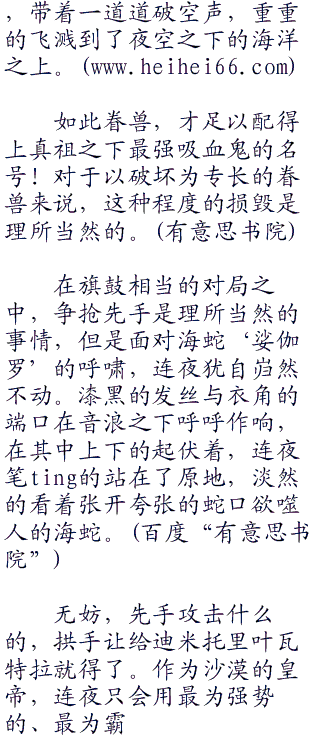 ，带着一道道破空声，重重
的飞溅到了夜空之下的海洋
之上。(www.heihei66.com)
如此眷兽，才足以配得
上真祖之下最强吸血鬼的名
号！对于以破坏为专长的眷
兽来说，这种程度的损毁是
理所当然的。(有意思书院)
在旗鼓相当的对局之
中，争抢先手是理所当然的
事情，但是面对海蛇‘娑伽
罗’的呼啸，连夜犹自岿然
不动。漆黑的发丝与衣角的
端口在音浪之下呼呼作响，
在其中上下的起伏着，连夜
笔ting的站在了原地，淡然
的看着张开夸张的蛇口欲噬
人的海蛇。(百度“有意思书
院”)
无妨，先手攻击什么
的，拱手让给迪米托里叶瓦
特拉就得了。作为沙漠的皇
帝，连夜只会用最为强势
的、最为霸